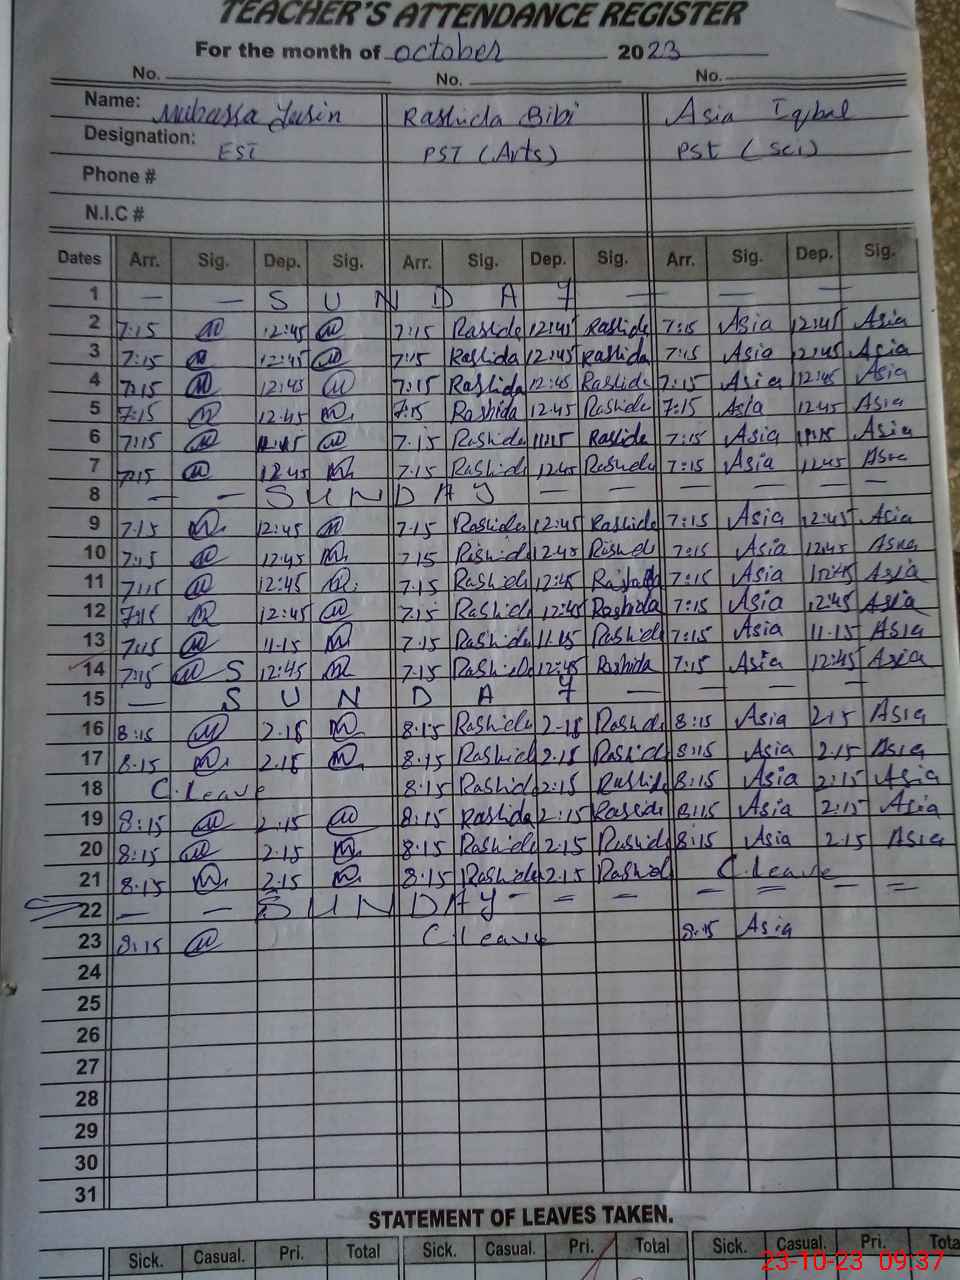 TEACHER'S ATTENDANCE REGISTER
For the month of October 2023
No. No. No.
Name: Rashida Bibi Asia Iqbal
Designation: EST PST (Arts) PST (Sci)
Phone #
N.I.C #
Dates Arr. Sig. Dep. Sig. Arr. Sig. Dep. Sig. Arr. Sig. Dep. Sig.
1 — — SUNDAY — — —
2 7:15 12:45 7:15 Rashida 12:45 Rashida 7:15 Asia 12:45 Asia
3 7:15 12:45 7:15 Rashida 12:45 Rashida 7:15 Asia 12:45 Asia
4 7:15 12:45 7:15 Rashida 12:45 Rashida 7:15 Asia 12:45 Asia
5 7:15 12.45 7:15 Rashida 12.45 Rashida 7:15 Asia 12.45 Asia
6 7:15 7.15 Rashida 11:15 Rashida 7:15 Asia 11:15 Asia
7 7:15 12.45 7.15 Rashida 12.45 Rashida 7:15 Asia 12.45 Asia
8 — — SUNDAY — — — — —
9 7.15 12:45 7.15 Rashida 12:45 Rashida 7:15 Asia 12:45 Asia
10 7:15 12:45 7.15 Rashida 12:45 Rashida 7:15 Asia 12:45 Asia
11 7:15 12:45 7.15 Rashida 12:45 Rashida 7:15 Asia 12:45 Asia
12 7:15 12:45 7.15 Rashida 12:45 Rashida 7:15 Asia 12:45 Asia
13 7:15 11.15 7.15 Rashida 11.15 Rashida 7:15 Asia 11.15 Asia
14 7:15 S 12:45 7.15 Rashida 12:45 Rashida 7:15 Asia 12:45 Asia
15 — SUNDAY — — — —
16 8:15 2.15 8.15 Rashida 2.15 Rashida 8:15 Asia 2.15 Asia
17 8.15 2.15 8.15 Rashida 2.15 Rashida 8:15 Asia 2.15 Asia
18 C.Leave 8:15 Rashida 2:15 Rashida 8:15 Asia 2:15 Asia
19 8:15 2:15 8:15 Rashida 2:15 Rashida 8:15 Asia 2:15 Asia
20 8:15 2.15 8.15 Rashida 2.15 Rashida 8:15 Asia 2.15 Asia
21 8.15 2.15 8.15 Rashida 2.15 Rashida C.Leave
22 — — SUNDAY — = = — = — =
23 8:15 C.Leave 8:15 Asia
24
25
26
27
28
29
30
31
STATEMENT OF LEAVES TAKEN.
Sick. Casual. Pri. Total Sick. Casual. Pri. Total Sick. Casual. Pri. Tota
23-10-23 09:37